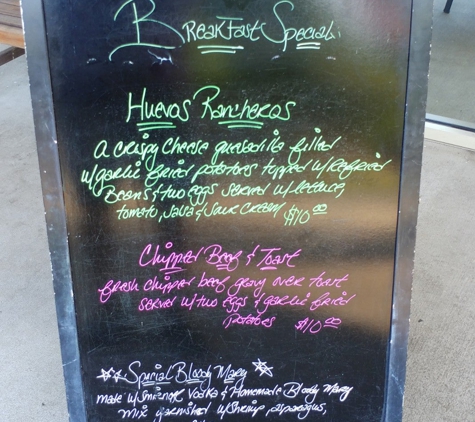 Breakfast Special:
Huevos Rancheros
A crispy cheese quesadilla filled
w/garlic fried potatoes topped w/Refried
Beans & two eggs served w/lettuce,
tomato, salsa & sour cream $10.00
Chipped Beef & Toast
fresh chipped beef gravy over toast
served w/two eggs & garlic fried
potatoes $10.00
Special Bloody Mary
made w/smirnoff Vodka & Homemade Bloody Mary
mix garnished w/shrimp, asparagus,